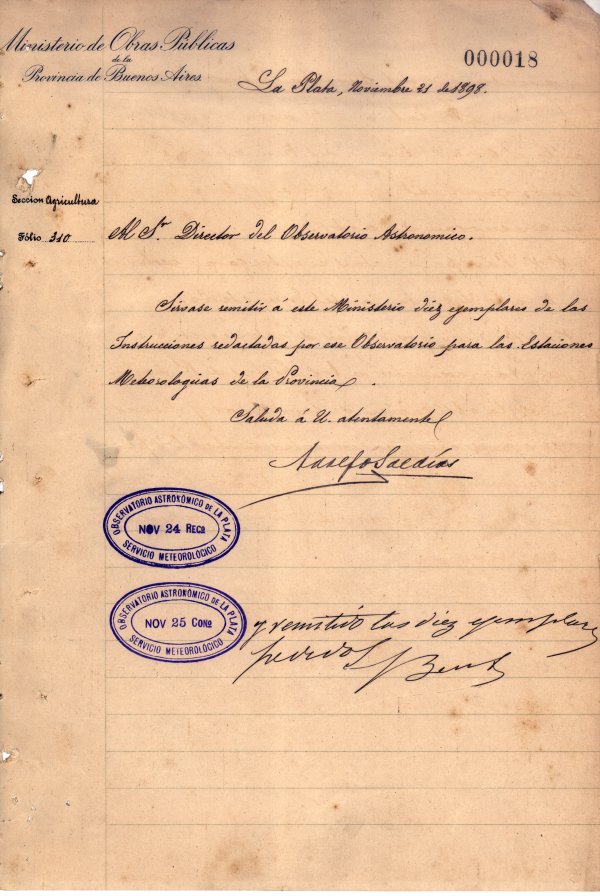 Ministerio de Obras Públicas
de la
Provincia de Buenos Aires
000018
La Plata, Noviembre 21 de 1898.
Seccion Agricultura
Fólio 310
Al Sr. Director del Observatorio Astronomico.
Sirvase remitir á este Ministerio diéz ejemplares de las
Instrucciones redactadas por ese Observatorio para las Estaciones
Meteorologicas de la Provincia.
Saluda á U. atentamente
Adolfo Saldías
OBSERVATORIO ASTRONÓMICO DE LA PLATA
NOV 24 RECº
SERVICIO METEOROLÓGICO
OBSERVATORIO ASTRONÓMICO DE LA PLATA
NOV 25 CONº
SERVICIO METEOROLÓGICO
y remitido los diez ejemplares
pedidos